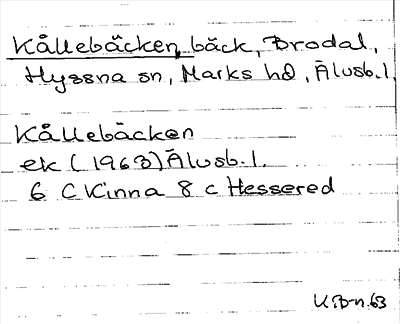 Kållebäcken, bäck, Brodal,
Hyssna sn, Marks hd, Älvsb.l.
Kållebäcken
ek (1963) Älvsb.l.
6 C Kinna 8 c Hessered